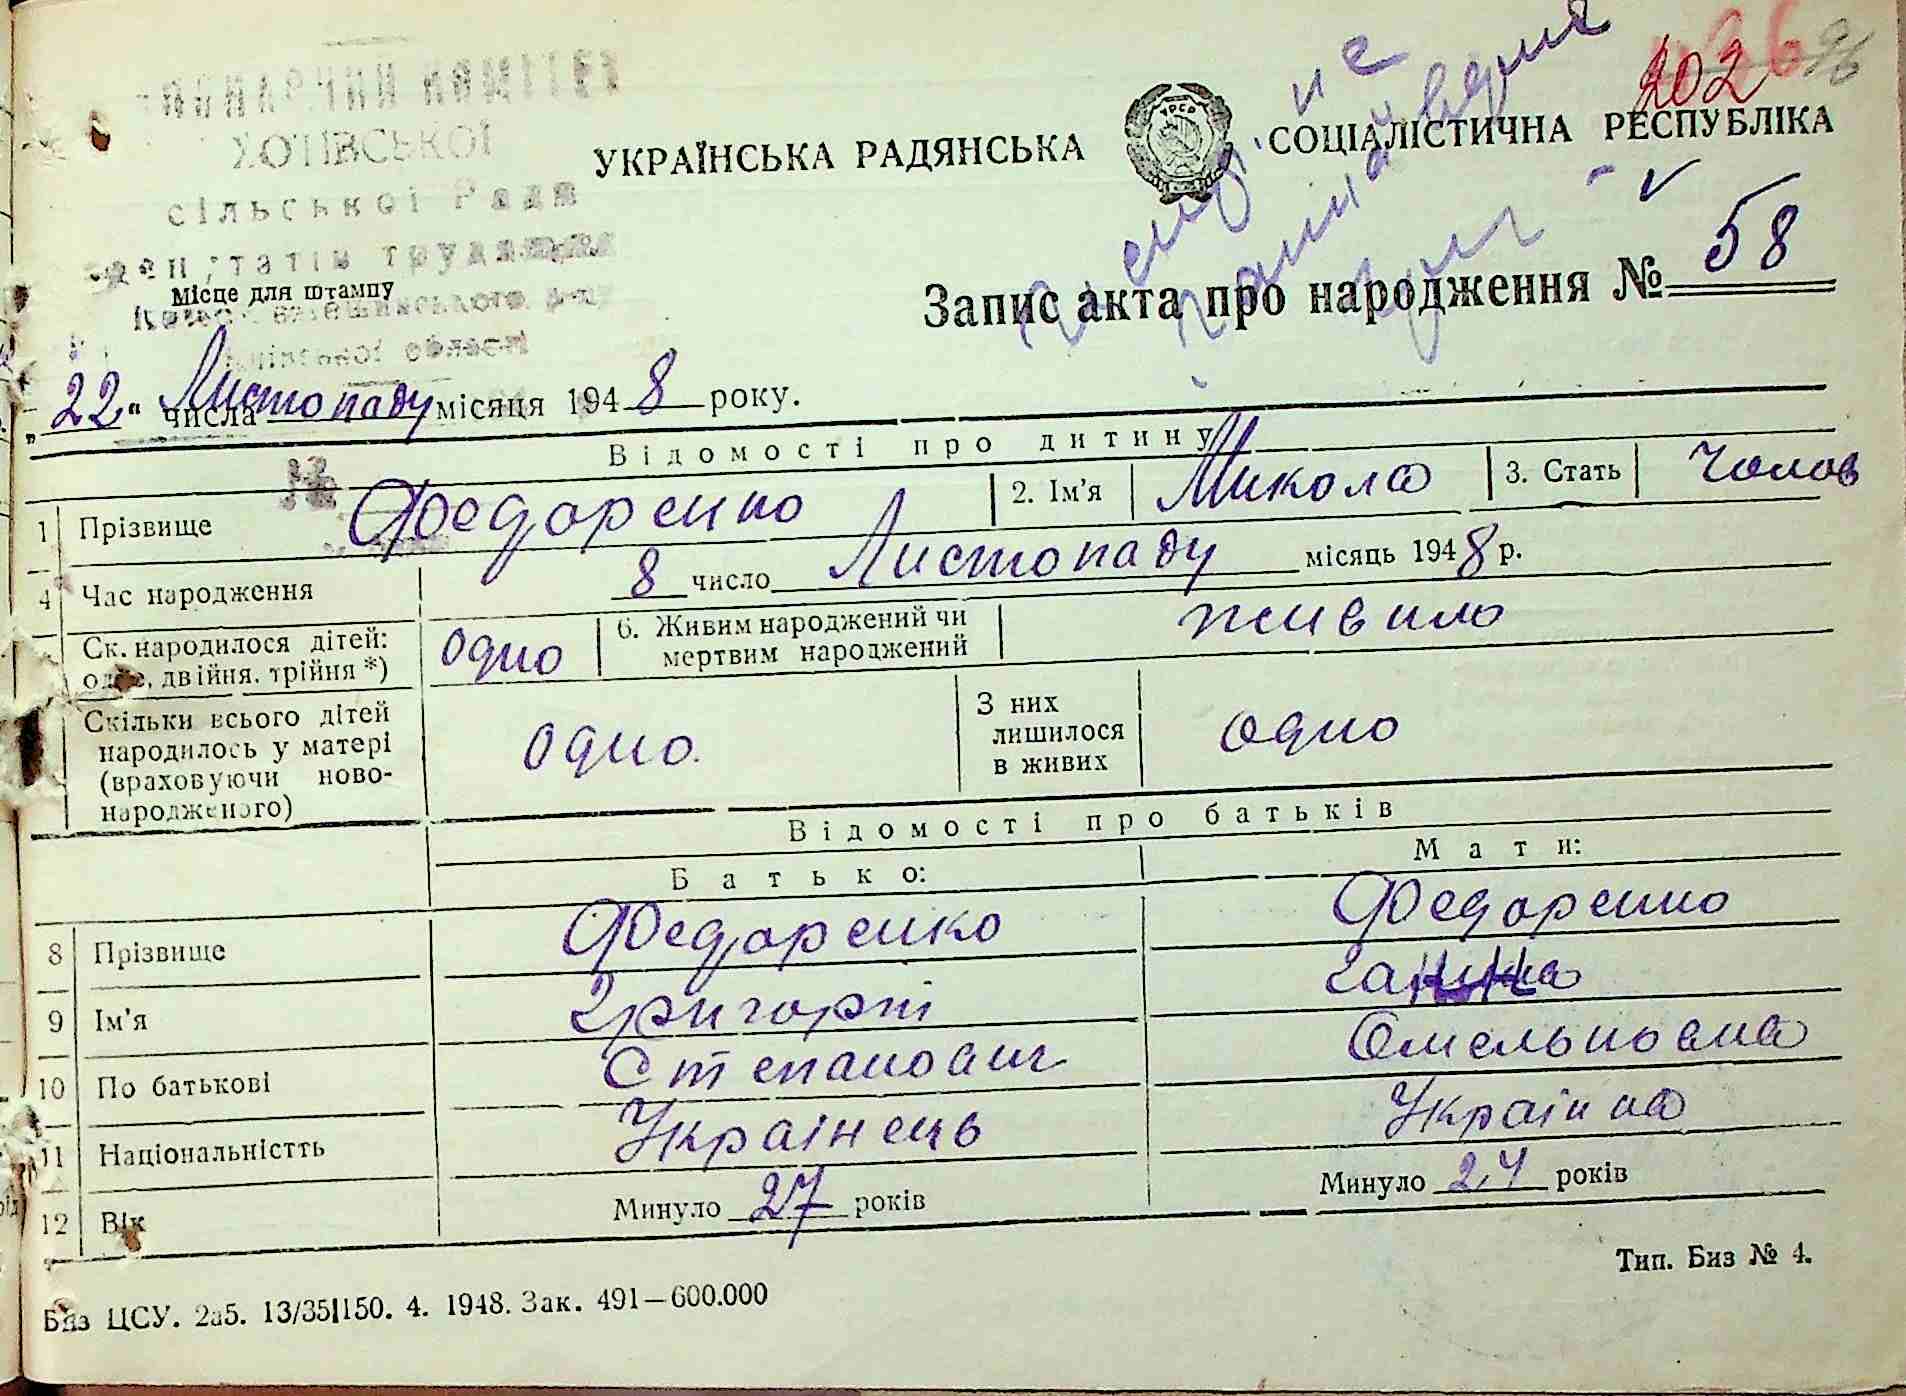 ХОТІВСЬКОЇ
сільської Ради
202 96
УКРАЇНСЬКА РАДЯНСЬКА СОЦІАЛІСТИЧНА РЕСПУБЛІКА
Місце для штампу
Запис акта про народження № 58
„22“ числа Листопаду місяця 1948 року.
Відомості про дитину
1 Прізвище Федоренко 2. Ім'я Микола 3. Стать Чолов
4 Час народження 8 число Листопаду місяць 1948 р.
Ск. народилося дітей: одне, двійня, трійня *) одно 6. Живим народжений чи мертвим народжений живило
Скільки всього дітей народилось у матері (враховуючи новонародженого) одно. З них лишилося в живих одно
Відомості про батьків
Батько: Мати:
8 Прізвище Федоренко Федоренко
9 Ім'я Григорій Ганна
10 По батькові Степанович Омельковна
11 Національністть Українець Українка
12 Вік Минуло 27 років Минуло 24 років
Тип. Биз № 4.
Биз ЦСУ. 2а5. 13/35|150. 4. 1948. Зак. 491—600.000